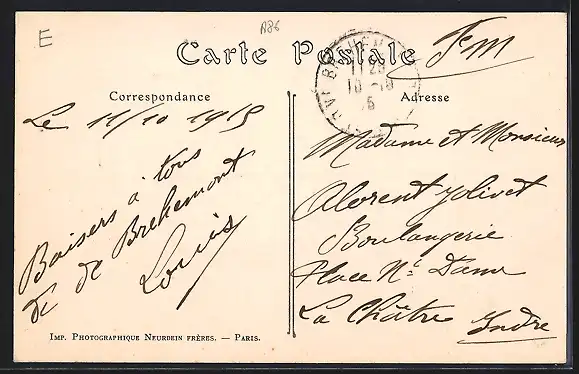 E
A86
Carte Postale
Fm
Correspondance
Adresse
Le 11/10 1915
Baisers à tous
de Brehemont
Louis
Madame et Monsieur
Jolivet
Boulangerie
Place Ne Dame
La Châtre
Indre
Imp. Photographique Neurdein Frères. — Paris.